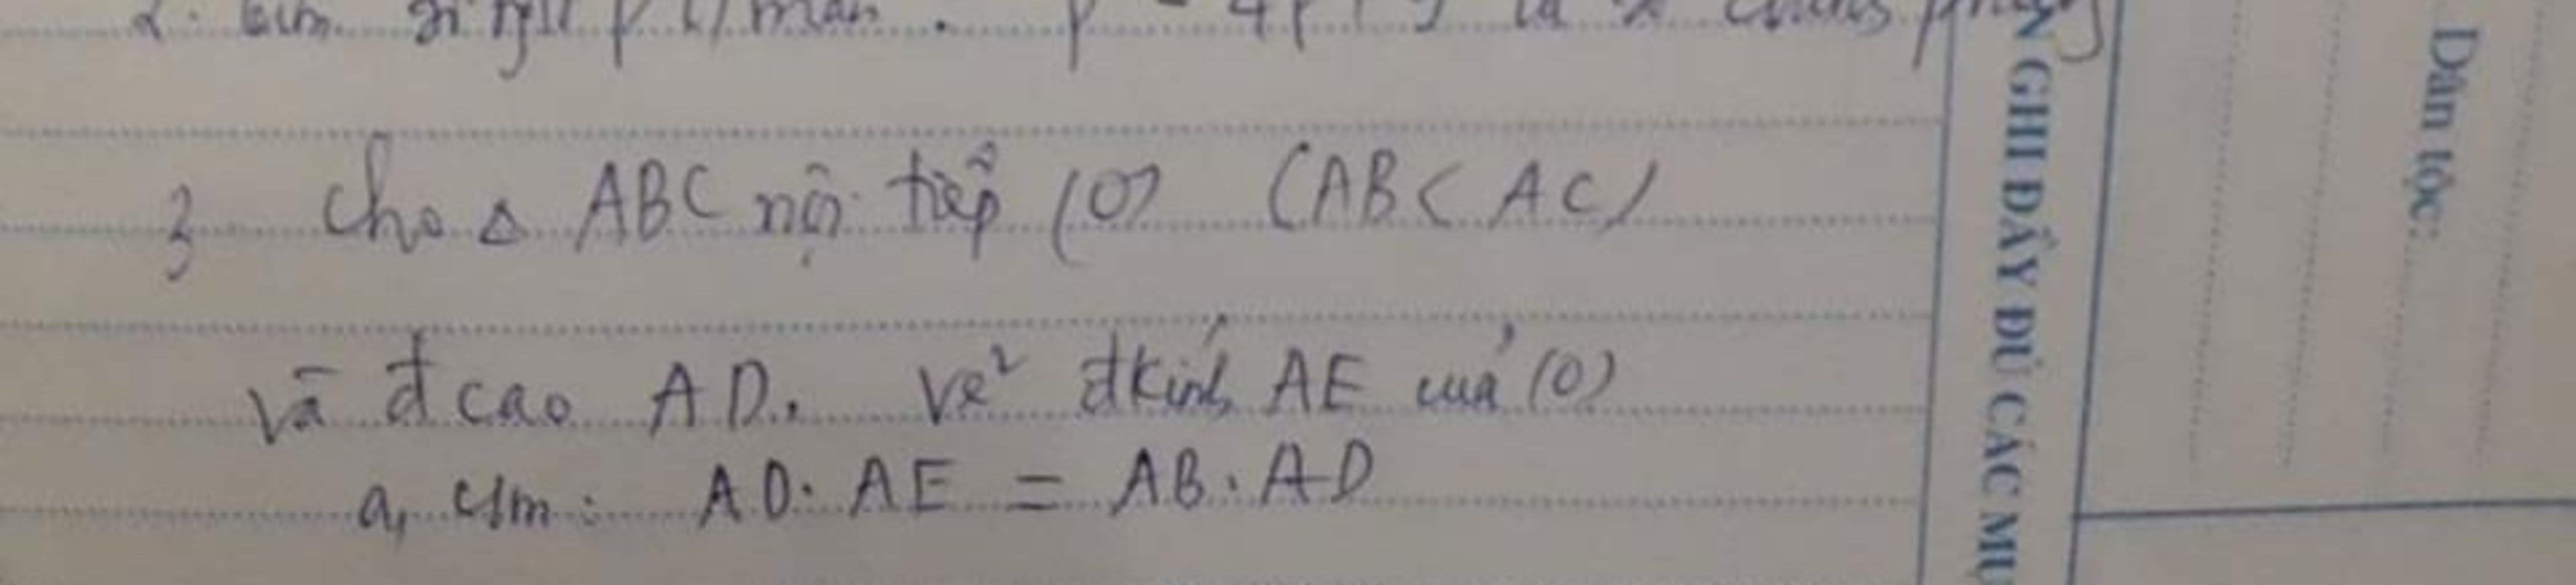 2. p là
3 Cho Δ ABC nội tiếp (O) (AB < AC)
và đ cao AD. Vẽ đkính AE của (O)
a, C/m: AD. AE = AB. AD
N GHI ĐẦY ĐỦ CÁC MỤ
Dân tộc: